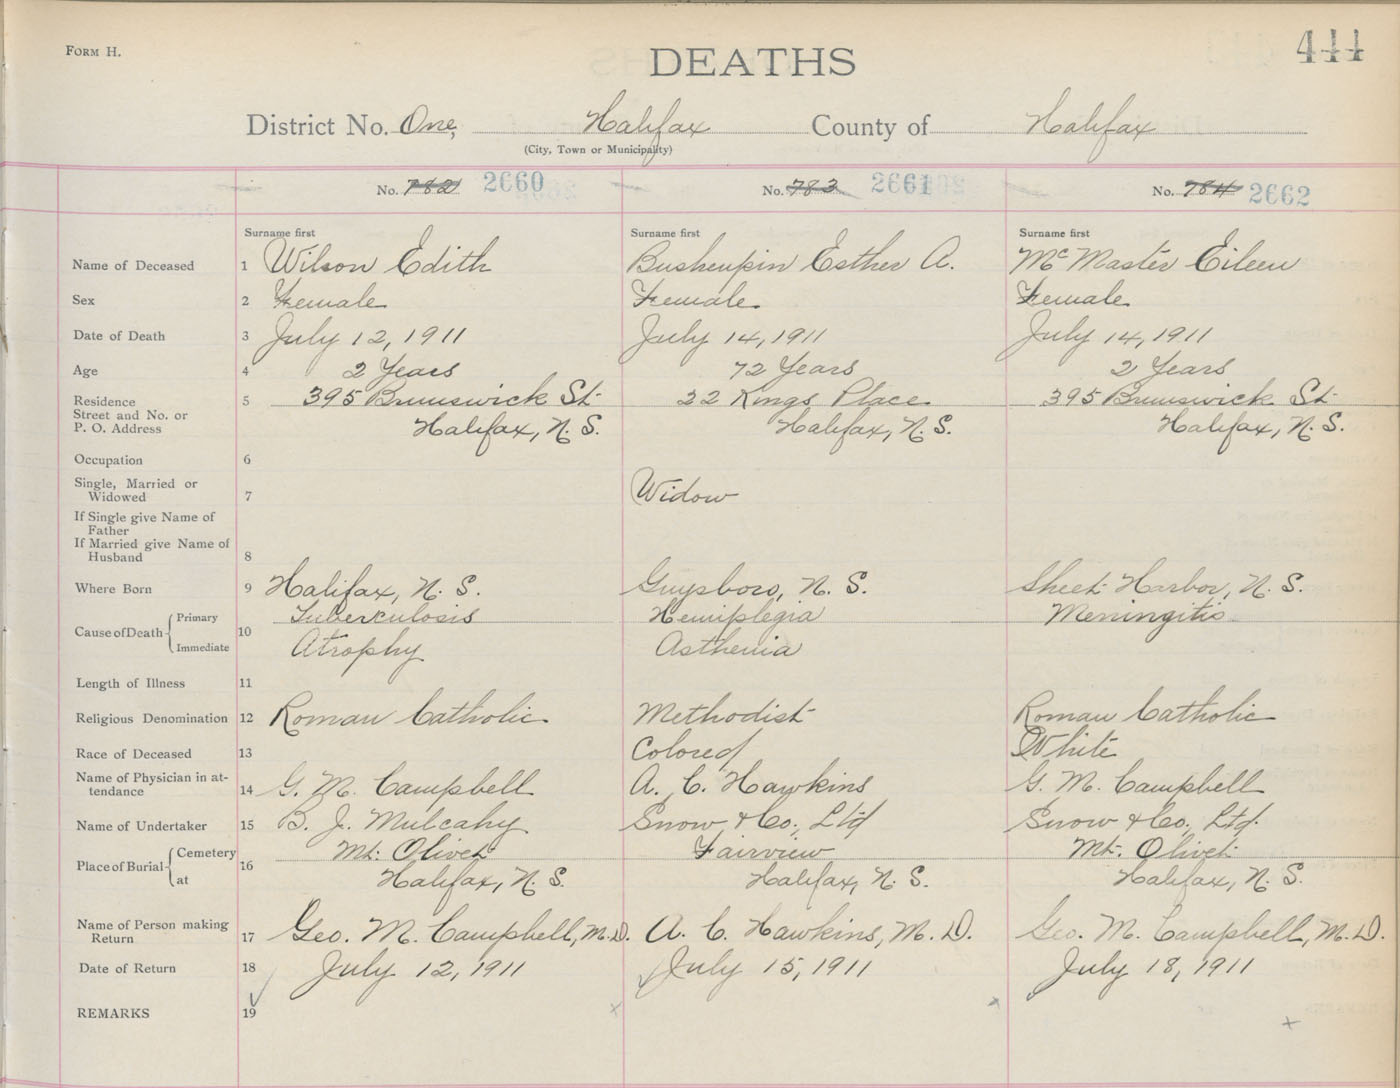 FORM H.
DEATHS
444
District No. One, Halifax County of Halifax
(City, Town or Municipality)
No. 782 2660 No. 783 2661 No. 784 2662
Surname first Surname first Surname first
Name of Deceased 1 Wilson Edith Busheupin Esther A. McMaster Eileen
Sex 2 Female Female Female
Date of Death 3 July 12, 1911 July 14, 1911 July 14, 1911
Age 4 2 Years 72 Years 2 Years
Residence 5 395 Brunswick St. 22 Kings Place 395 Brunswick St.
Street and No. or
P. O. Address Halifax, N. S. Halifax, N. S. Halifax, N. S.
Occupation 6
Single, Married or
Widowed 7 Widow
If Single give Name of
Father
If Married give Name of
Husband 8
Where Born 9 Halifax, N. S. Guysboro, N. S. Sheet Harbor, N. S.
Cause of Death Primary 10 Tuberculosis Hemiplegia Meningitis
Immediate Atrophy Asthenia
Length of Illness 11
Religious Denomination 12 Roman Catholic Methodist Roman Catholic
Race of Deceased 13 Colored White
Name of Physician in at-
tendance 14 G. M. Campbell A. C. Hawkins G. M. Campbell
Name of Undertaker 15 B. J. Mulcahy Snow & Co., Ltd Snow & Co., Ltd.
Place of Burial Cemetery 16 Mt. Olivet Fairview Mt. Olivet
at Halifax, N. S. Halifax, N. S. Halifax, N. S.
Name of Person making
Return 17 Geo. M. Campbell, M.D. A. C. Hawkins, M.D. Geo. M. Campbell, M.D.
Date of Return 18 July 12, 1911 July 15, 1911 July 18, 1911
REMARKS 19